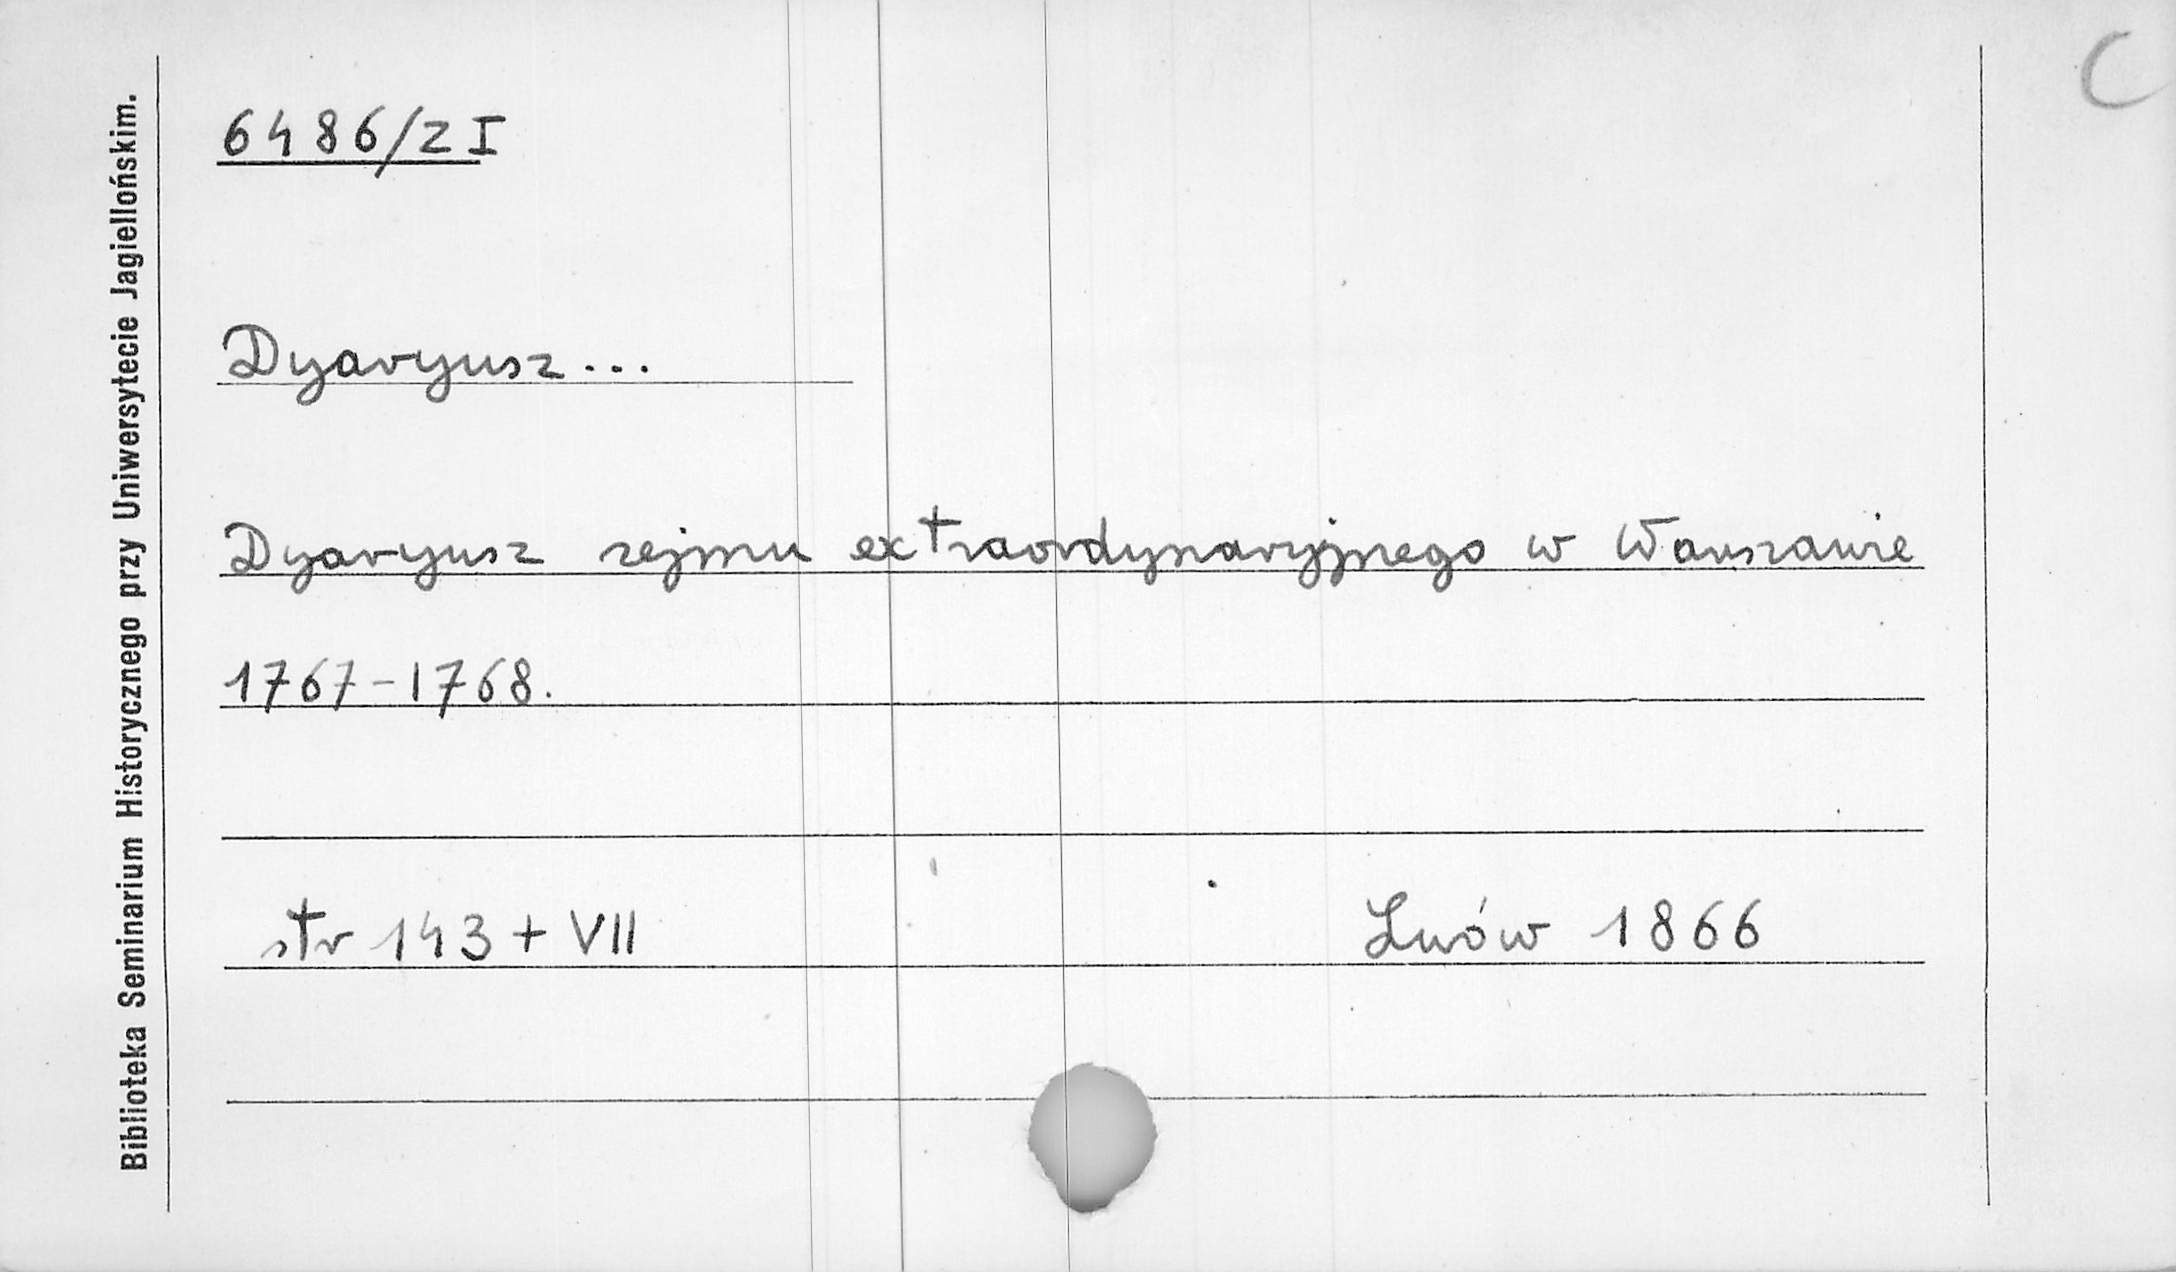 C
6486/2 I
Dyaryusz...
Dyaryusz sejmu extraordynaryjnego w Warszawie
1767-1768.
str 143 + VII Lwów 1866
Biblioteka Seminarium Historycznego przy Uniwersytecie Jagiellońskim.